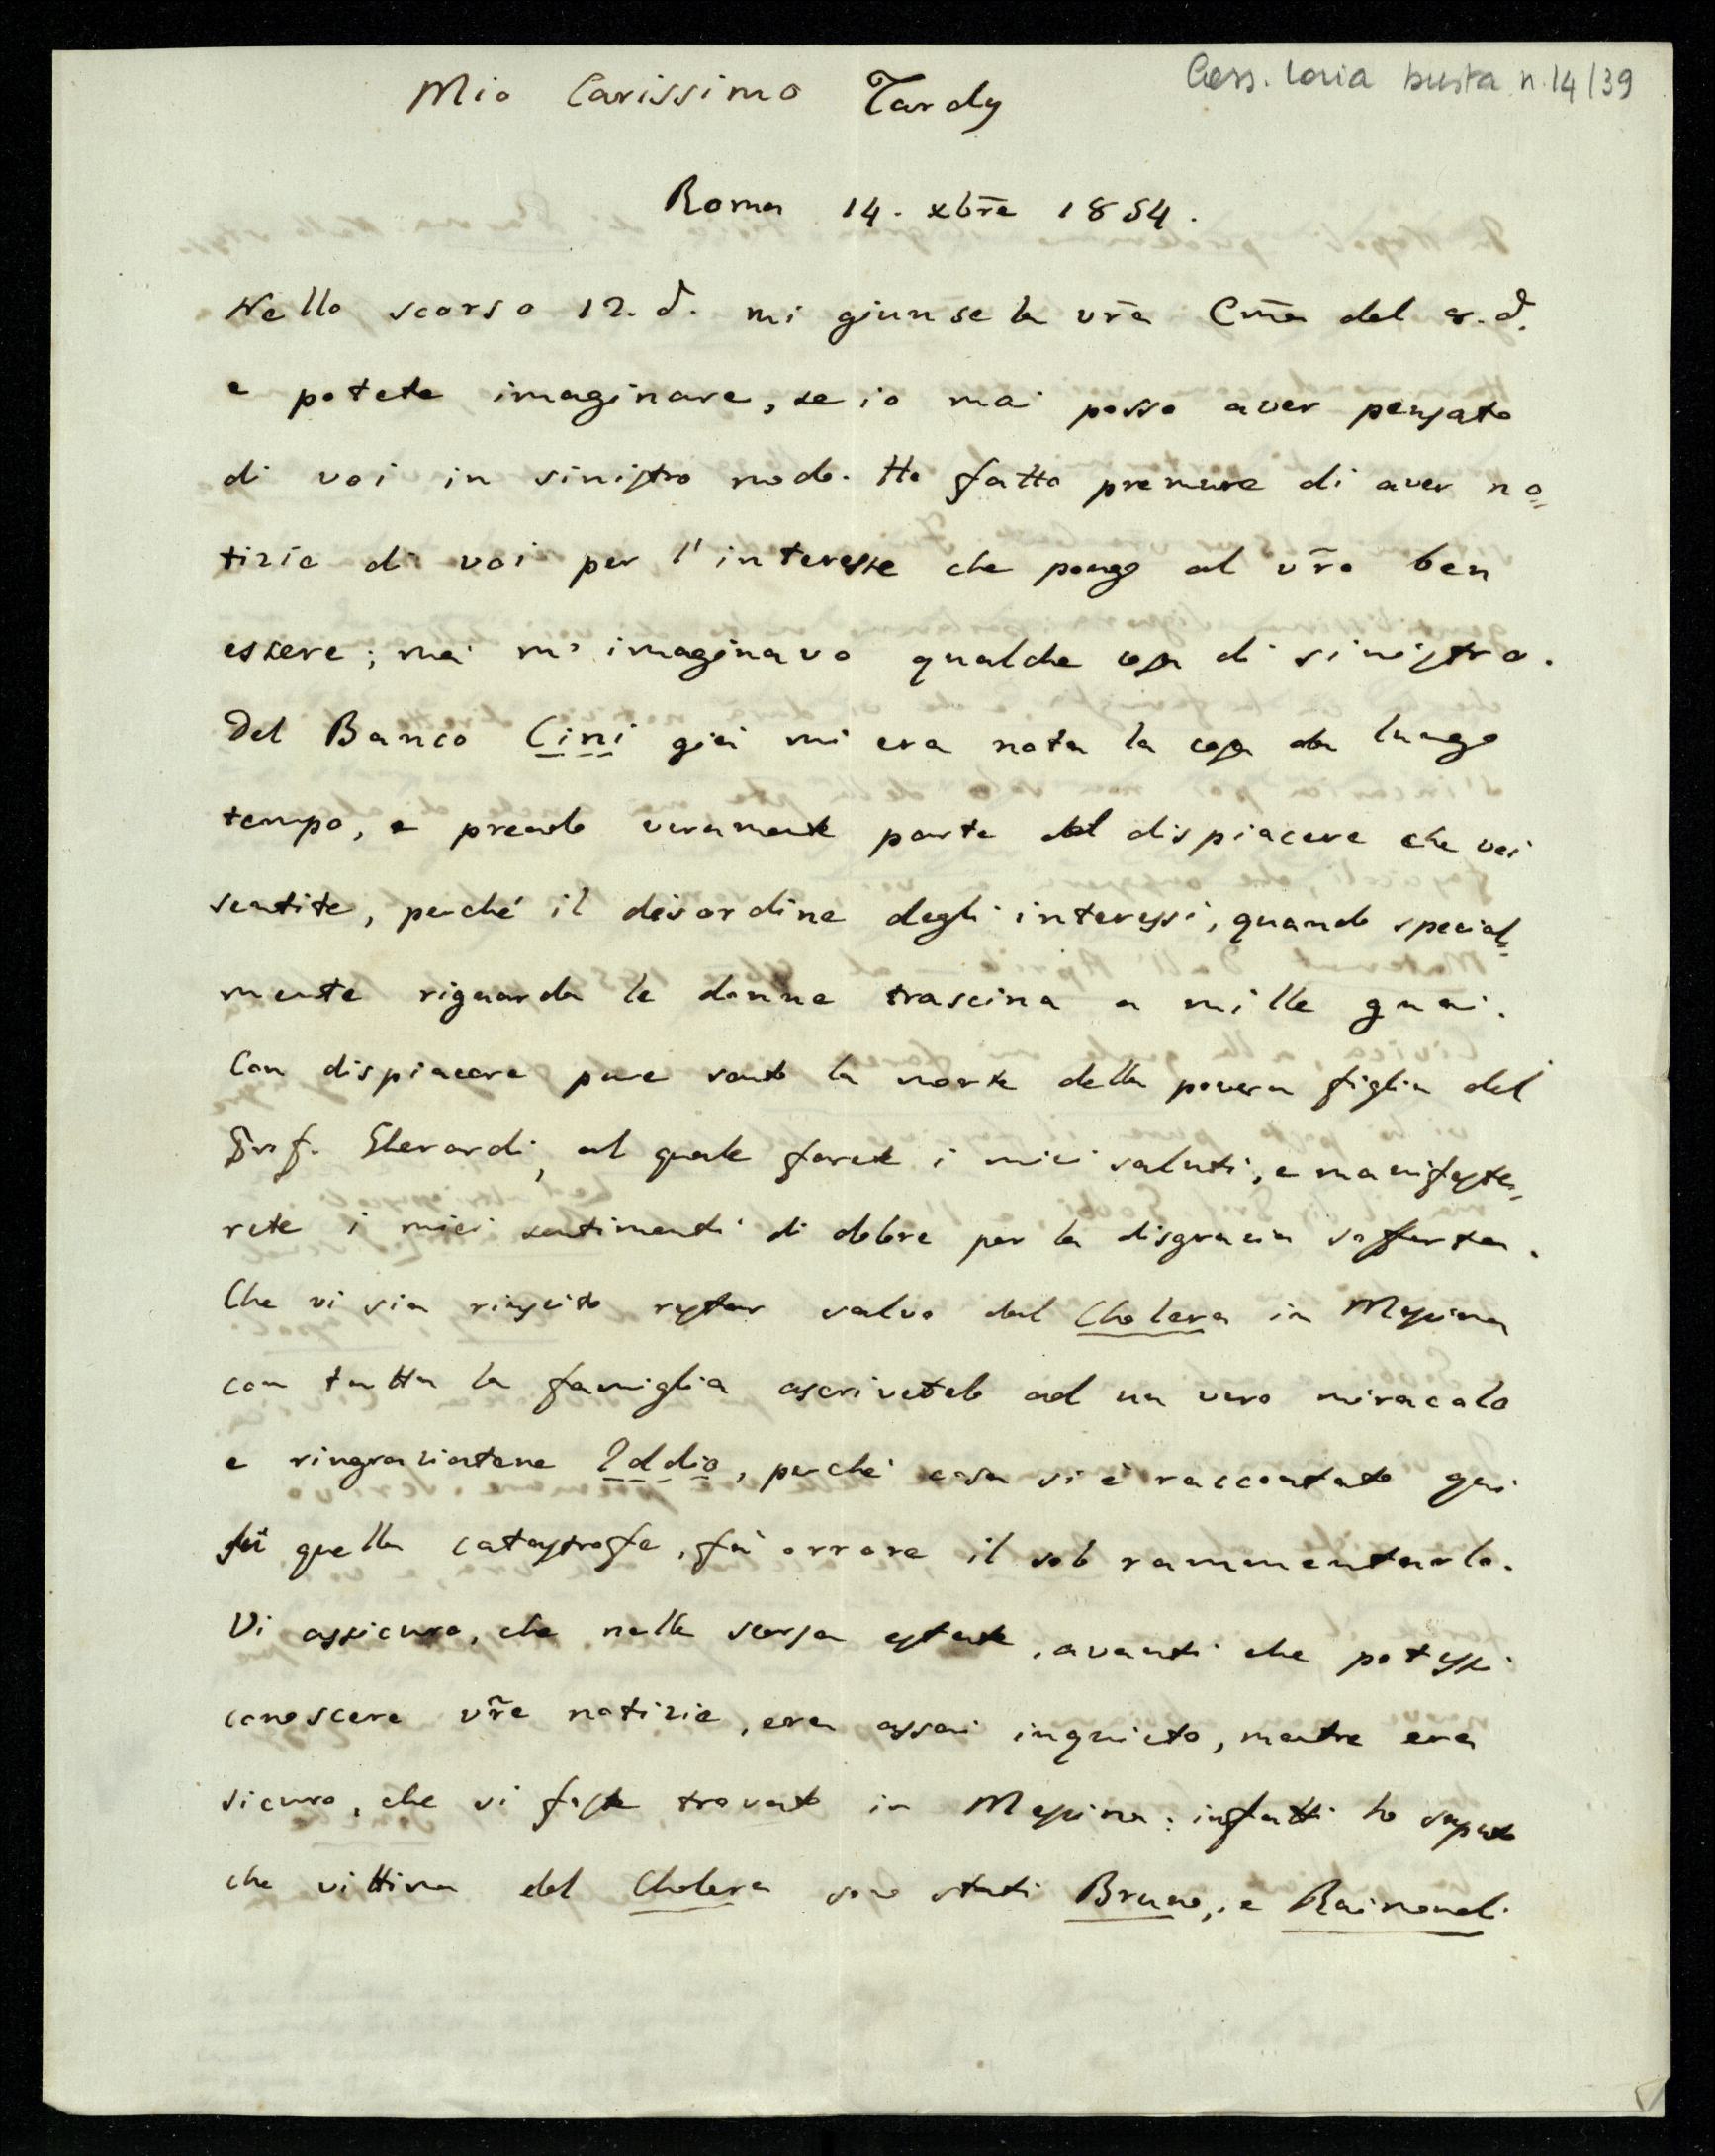 Cass. Loria busta n. 14/39
Mio Carissimo Tardy
Roma 14. xbr̃e 1854.
Nello scorso 12. d. mi giunse la vr̃a Cm̃a del s. d.
e potete imaginare, se io mai posso aver pensato
di voi in sinistro modo. Ho fatto premure di aver no=
tizie di voi per l'interesse che pongo al vr̃o ben
essere; mai m'imaginavo qualche cosa di sinistro.
Del Banco Cini già mi era nota la cosa da lungo
tempo, e prendo veramente parte del dispiacere che voi
sentite, perché il disordine degli interessi, quando special=
mente riguarda le donne trascina a mille guai.
Con dispiacere pure sento la morte della povera figlia del
Prof. Gherardi, al quale farete i miei saluti, e manifeste=
rete i miei sentimenti di dolore per la disgrazia sofferta.
Che vi sia riuscito restar salvo dal Cholera in Messina
con tutta la famiglia ascrivetelo ad un vero miracolo
e ringraziatene Iddio, perché cosa si è raccontato qui
su quella catastrofe, fà orrore il solo rammentarlo.
Vi assicuro, che nella scorsa estate, avanti che potessi
conoscere vr̃e notizie, era assai inquieto, mentre era
sicuro, che vi foste trovato in Messina: infatti ho saputo
che vittima del Cholera sono stati Bruno, e Raimondi